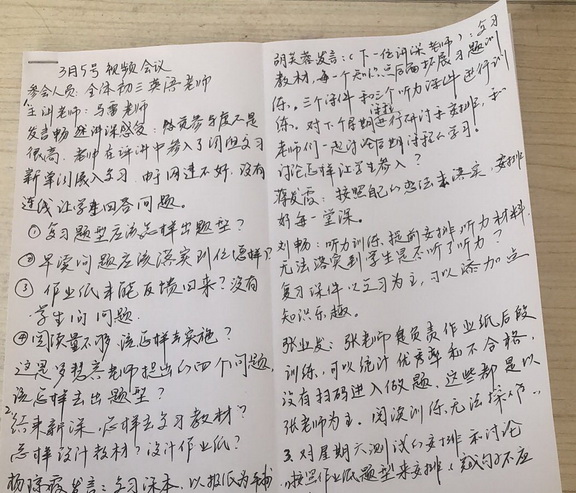 3月5号视频会议
参会人员:全体初三英语老师
主讲老师:马蕾老师
发言畅述讲课感受:参与度不是
很高.老师在评讲中参入了阅坦复习
新单训展入复习.由于网速不好.没有
连线让学生回答问题。
①复习题型应该怎样出题型?
②早读问题应该落实到位怎样?
③作业纸未能反馈回来?没有
学生问问题.
④阅读量不够.该怎样去实施?
这是 老师提出的四个问题.
该怎样去出题型?
2.结束新课.怎样去复习教材?
怎样设计教材?设计作业纸?
发言:复习课本.以报纸为
胡芙蓉发言:(下一位讲课老师):复习
教材,每一个知识点后面拓展习题训
练。三个课件和三个听力课件进行训
练。对下个星期课程进行研讨和安排,和
老师们一起讨论后期课程的学习。
讨论怎样让学生参入?
蒋发霞:按照自己的想法来落实,安排
好每一堂课。
刘畅:听力训练.提前安排听力材料.
无法落实到学生是不听了听力?
复习课件以复习为主,可以添加点
知识乐趣。
张业发:张老师是负责作业纸后段
训练,可以统计优秀率和不合格,
没有扫码进入做题.这些都是以
张老师为主.阅读训练.无法操作..
3.对星期六测试的安排和讨论
按照作业纸题型来安排(